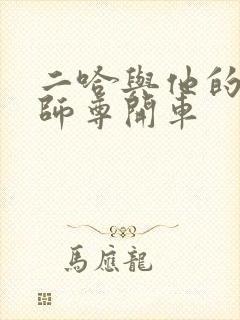 二哈與他的
師尊開車
馬應龍